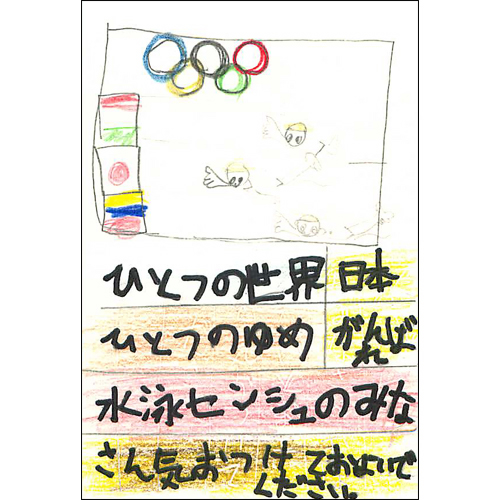 ひとつの世界 日本
ひとつのゆめ がんばれ
水泳センシュのみな
さん気おつけておよいで
ください。